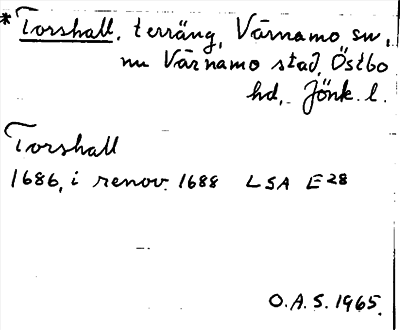 * Torshall, terräng, Värnamo sn,
nu Värnamo stad, Östbo
hd, Jönk. l.
Torshall
1686, i renov. 1688 LSA E28
O.A.S. 1965.